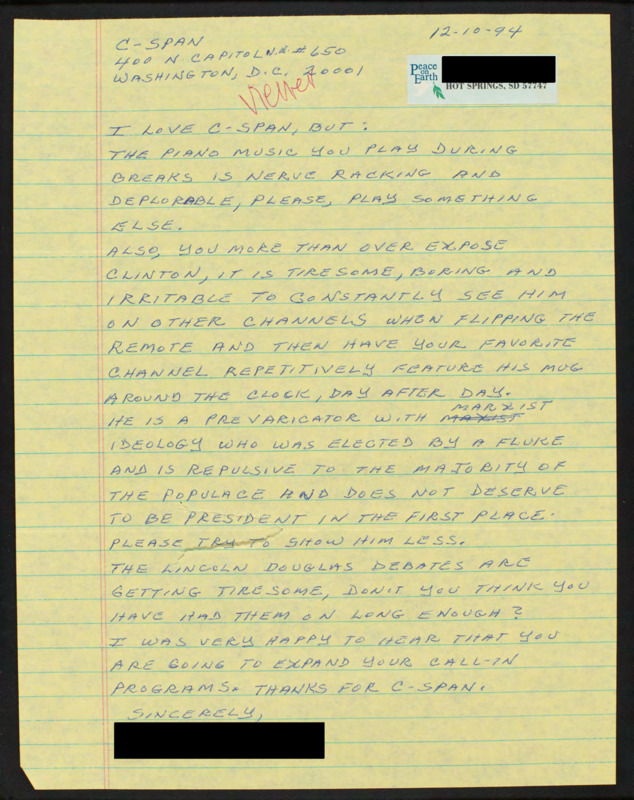 12-10-94
C-SPAN
400 N. CAPITOL N.W. #650
WASHINGTON, D.C. 20001
Peace
on
Earth
HOT SPRINGS, SD 57747
Viewer
I LOVE C-SPAN, BUT:
THE PIANO MUSIC YOU PLAY DURING
BREAKS IS NERVE RACKING AND
DEPLORABLE, PLEASE, PLAY SOMETHING
ELSE.
ALSO, YOU MORE THAN OVER EXPOSE
CLINTON, IT IS TIRESOME, BORING AND
IRRITABLE TO CONSTANTLY SEE HIM
ON OTHER CHANNELS WHEN FLIPPING THE
REMOTE AND THEN HAVE YOUR FAVORITE
CHANNEL REPETITIVELY FEATURE HIS MUG
AROUND THE CLOCK, DAY AFTER DAY.
HE IS A PREVARICATOR WITH MAXIST MARXIST
IDEOLOGY WHO WAS ELECTED BY A FLUKE
AND IS REPULSIVE TO THE MAJORITY OF
THE POPULACE AND DOES NOT DESERVE
TO BE PRESIDENT IN THE FIRST PLACE.
PLEASE TRY TO SHOW HIM LESS.
THE LINCOLN DOUGLAS DEBATES ARE
GETTING TIRESOME, DON'T YOU THINK YOU
HAVE HAD THEM ON LONG ENOUGH?
I WAS VERY HAPPY TO HEAR THAT YOU
ARE GOING TO EXPAND YOUR CALL-IN
PROGRAMS. THANKS FOR C-SPAN.
SINCERELY,